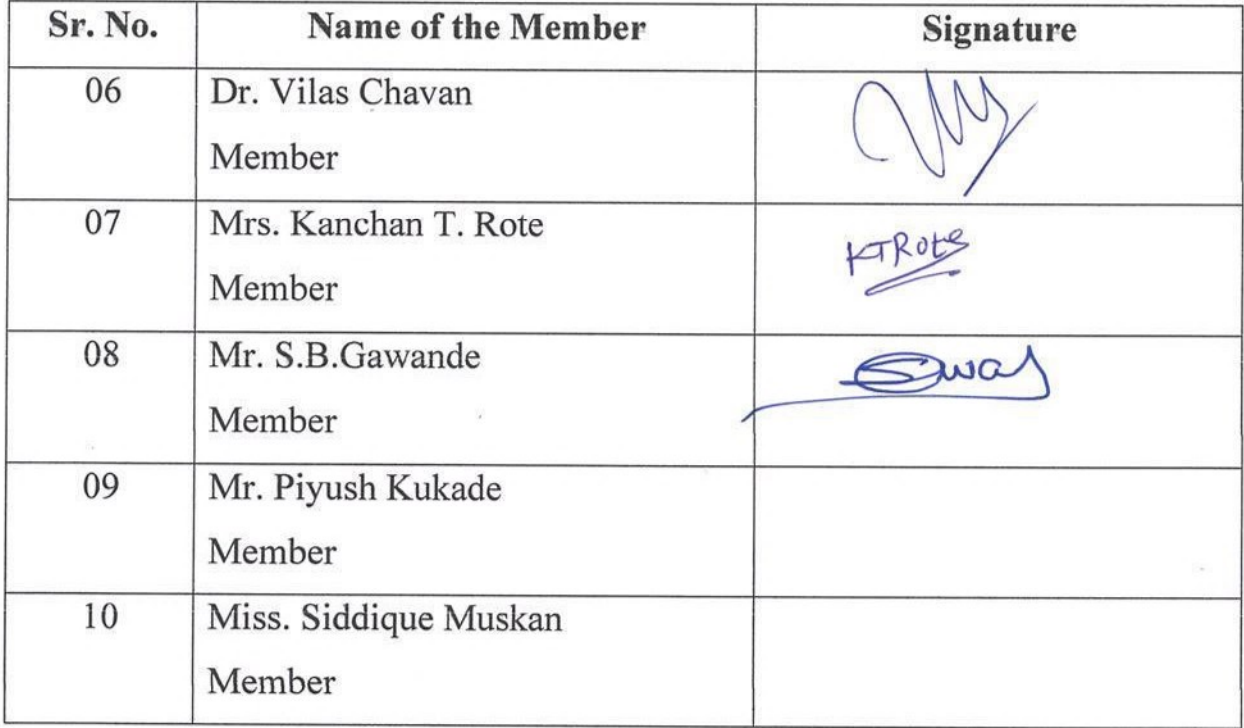 Sr. No. Name of the Member Signature
06 Dr. Vilas Chavan
Member
07 Mrs. Kanchan T. Rote KTRote
Member
08 Mr. S.B.Gawande
Member
09 Mr. Piyush Kukade
Member
10 Miss. Siddique Muskan
Member